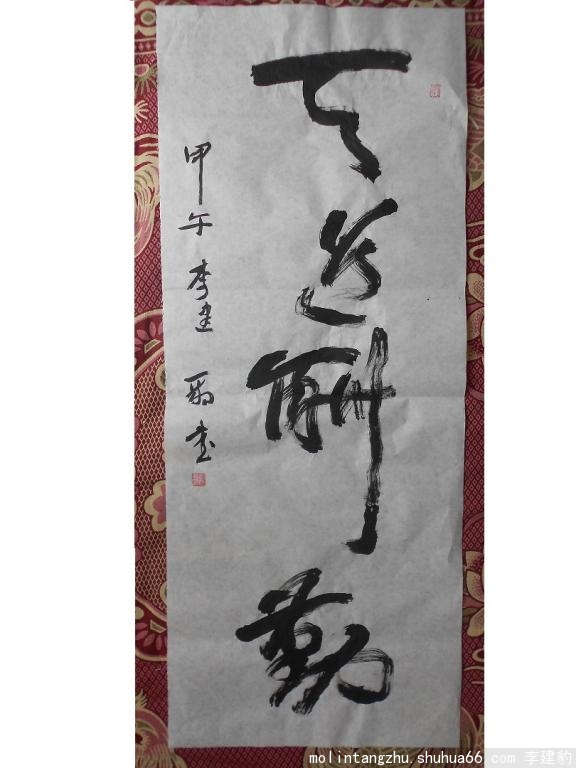 天道酬勤
甲午李建豹书
molintangzhu.shuhua66.com 李建豹